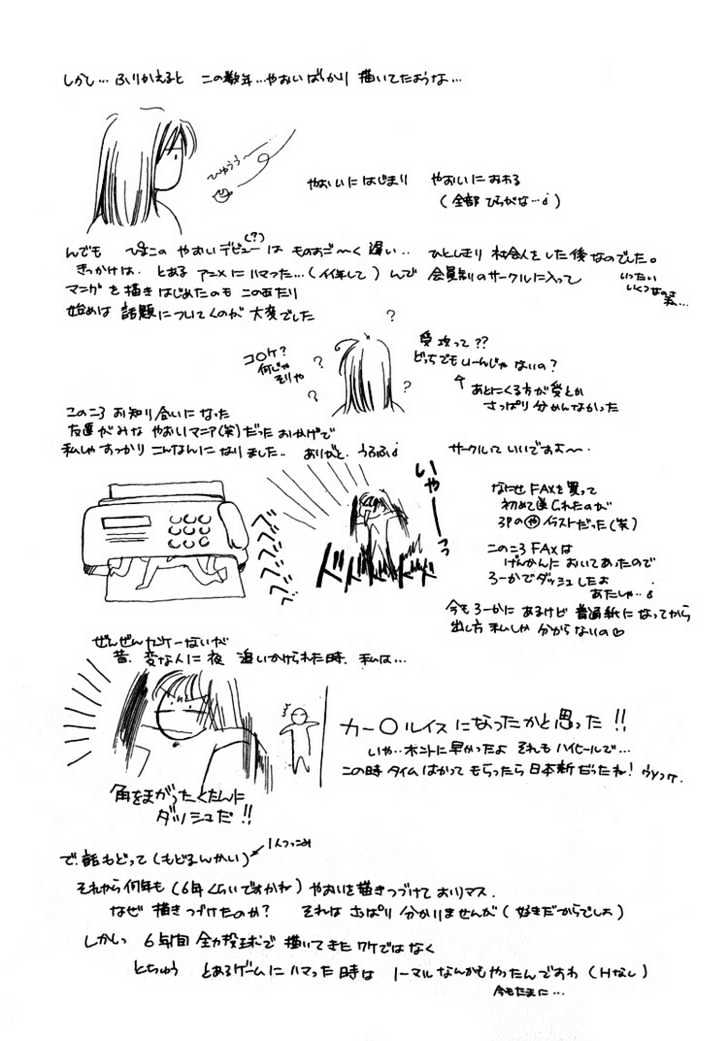 しかし… ふりかえると この数年…やおいばっかり 描いてたような…
ひゅうう〜
やおいにはじまり やおいにおわる
(全部 ひらがな…)
んでも ぴまこの やおいデビュー(?)は ものすご〜く 遅い‥ ひとしきり 社会人をした後なのでした。
きっかけは、とある アニメに ハマった…(イイ年して) んで 会員制のサークルに入って
いったい
いくつなのさ
私…
マンガ を 描き はじめたのも このあたり
始めは 話題についてくのが 大変でした
?
コ○ケ?
何じゃ
そりゃ
?
?
?
受攻って??
どっちでも いーんじゃ ないの?
↑ あとにくる方が 受とか
さっぱり 分かんなかった
このころ お知り合いになった
友達がみな やおいマニア(笑)だった おかげで
私しゃ すっかり こんなんに なりました‥ ありがと、うるふ
サークルって いいですよ〜
いやーーっ
べべべべべ
ドドドドドド
なにせ FAXを買って
初めて送られたのが
3Pの㋳イラストだった(笑)
このころ FAXは
げんかんに おいてあったので
ろーかでダッシュしたよ
あたしゃ‥
今も ろーかに あるけど 普通紙に なってから
出し方 私しか 分からないの♡
ぜんぜんカンケーないが
昔、変な人に 夜 追いかけられた時、私は…
角をまがったとたんに
ダッシュだ!!
カー○ルイス になったかと思った!!
いや‥ホントに早かったよ それも ハイヒールで…
この時 タイム はかって もらったら 日本新だったね!
で、話もどって(もどるんかい) ← 1人つっこみ
それから何年も(6年くらいですかね) やおいを描きつづけて おりマス.
なぜ 描きつづけたのか? それは さっぱり 分かりませんが(好きだからでしょ)
しかしっ 6年間 全力投球で 描いてきたワケではなく
とちゅう とあるゲームに ハマった時は ノーマル なんかも やったんですわ (Hなし)
今もたまに…